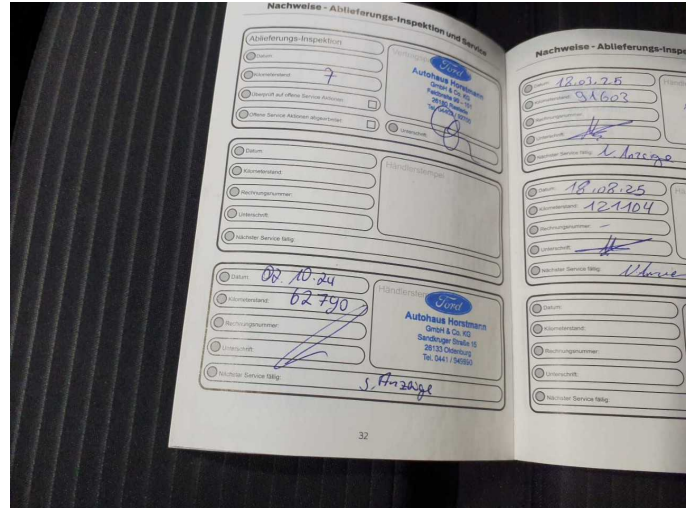 Nachweise - Ablieferungs-Inspektion und Service
Ablieferungs-Inspektion
Datum:
Kilometerstand: 7
Überprüft auf offene Service Aktionen
Offene Service Aktionen abgearbeitet
Ford
Autohaus Horstmann
GmbH & Co. KG
Unterschrift:
Datum:
Kilometerstand:
Rechnungsnummer:
Unterschrift:
Nächster Service fällig:
Händlerstempel
Datum: 02.10.24
Kilometerstand: 62790
Rechnungsnummer:
Unterschrift:
Nächster Service fällig: s. Anzeige
Ford
Autohaus Horstmann
GmbH & Co. KG
Sandkruger Straße 15
26133 Oldenburg
Tel. 0441 /
32
Nachweise - Ablieferungs-Inspe
Datum: 18.03.25
Kilometerstand: 91603
Rechnungsnummer:
Unterschrift:
Nächster Service fällig: Anzeige
Datum: 18.08.25
Kilometerstand: 121104
Rechnungsnummer: -
Unterschrift:
Nächster Service fällig:
Datum:
Kilometerstand:
Rechnungsnummer:
Unterschrift:
Nächster Service fällig: